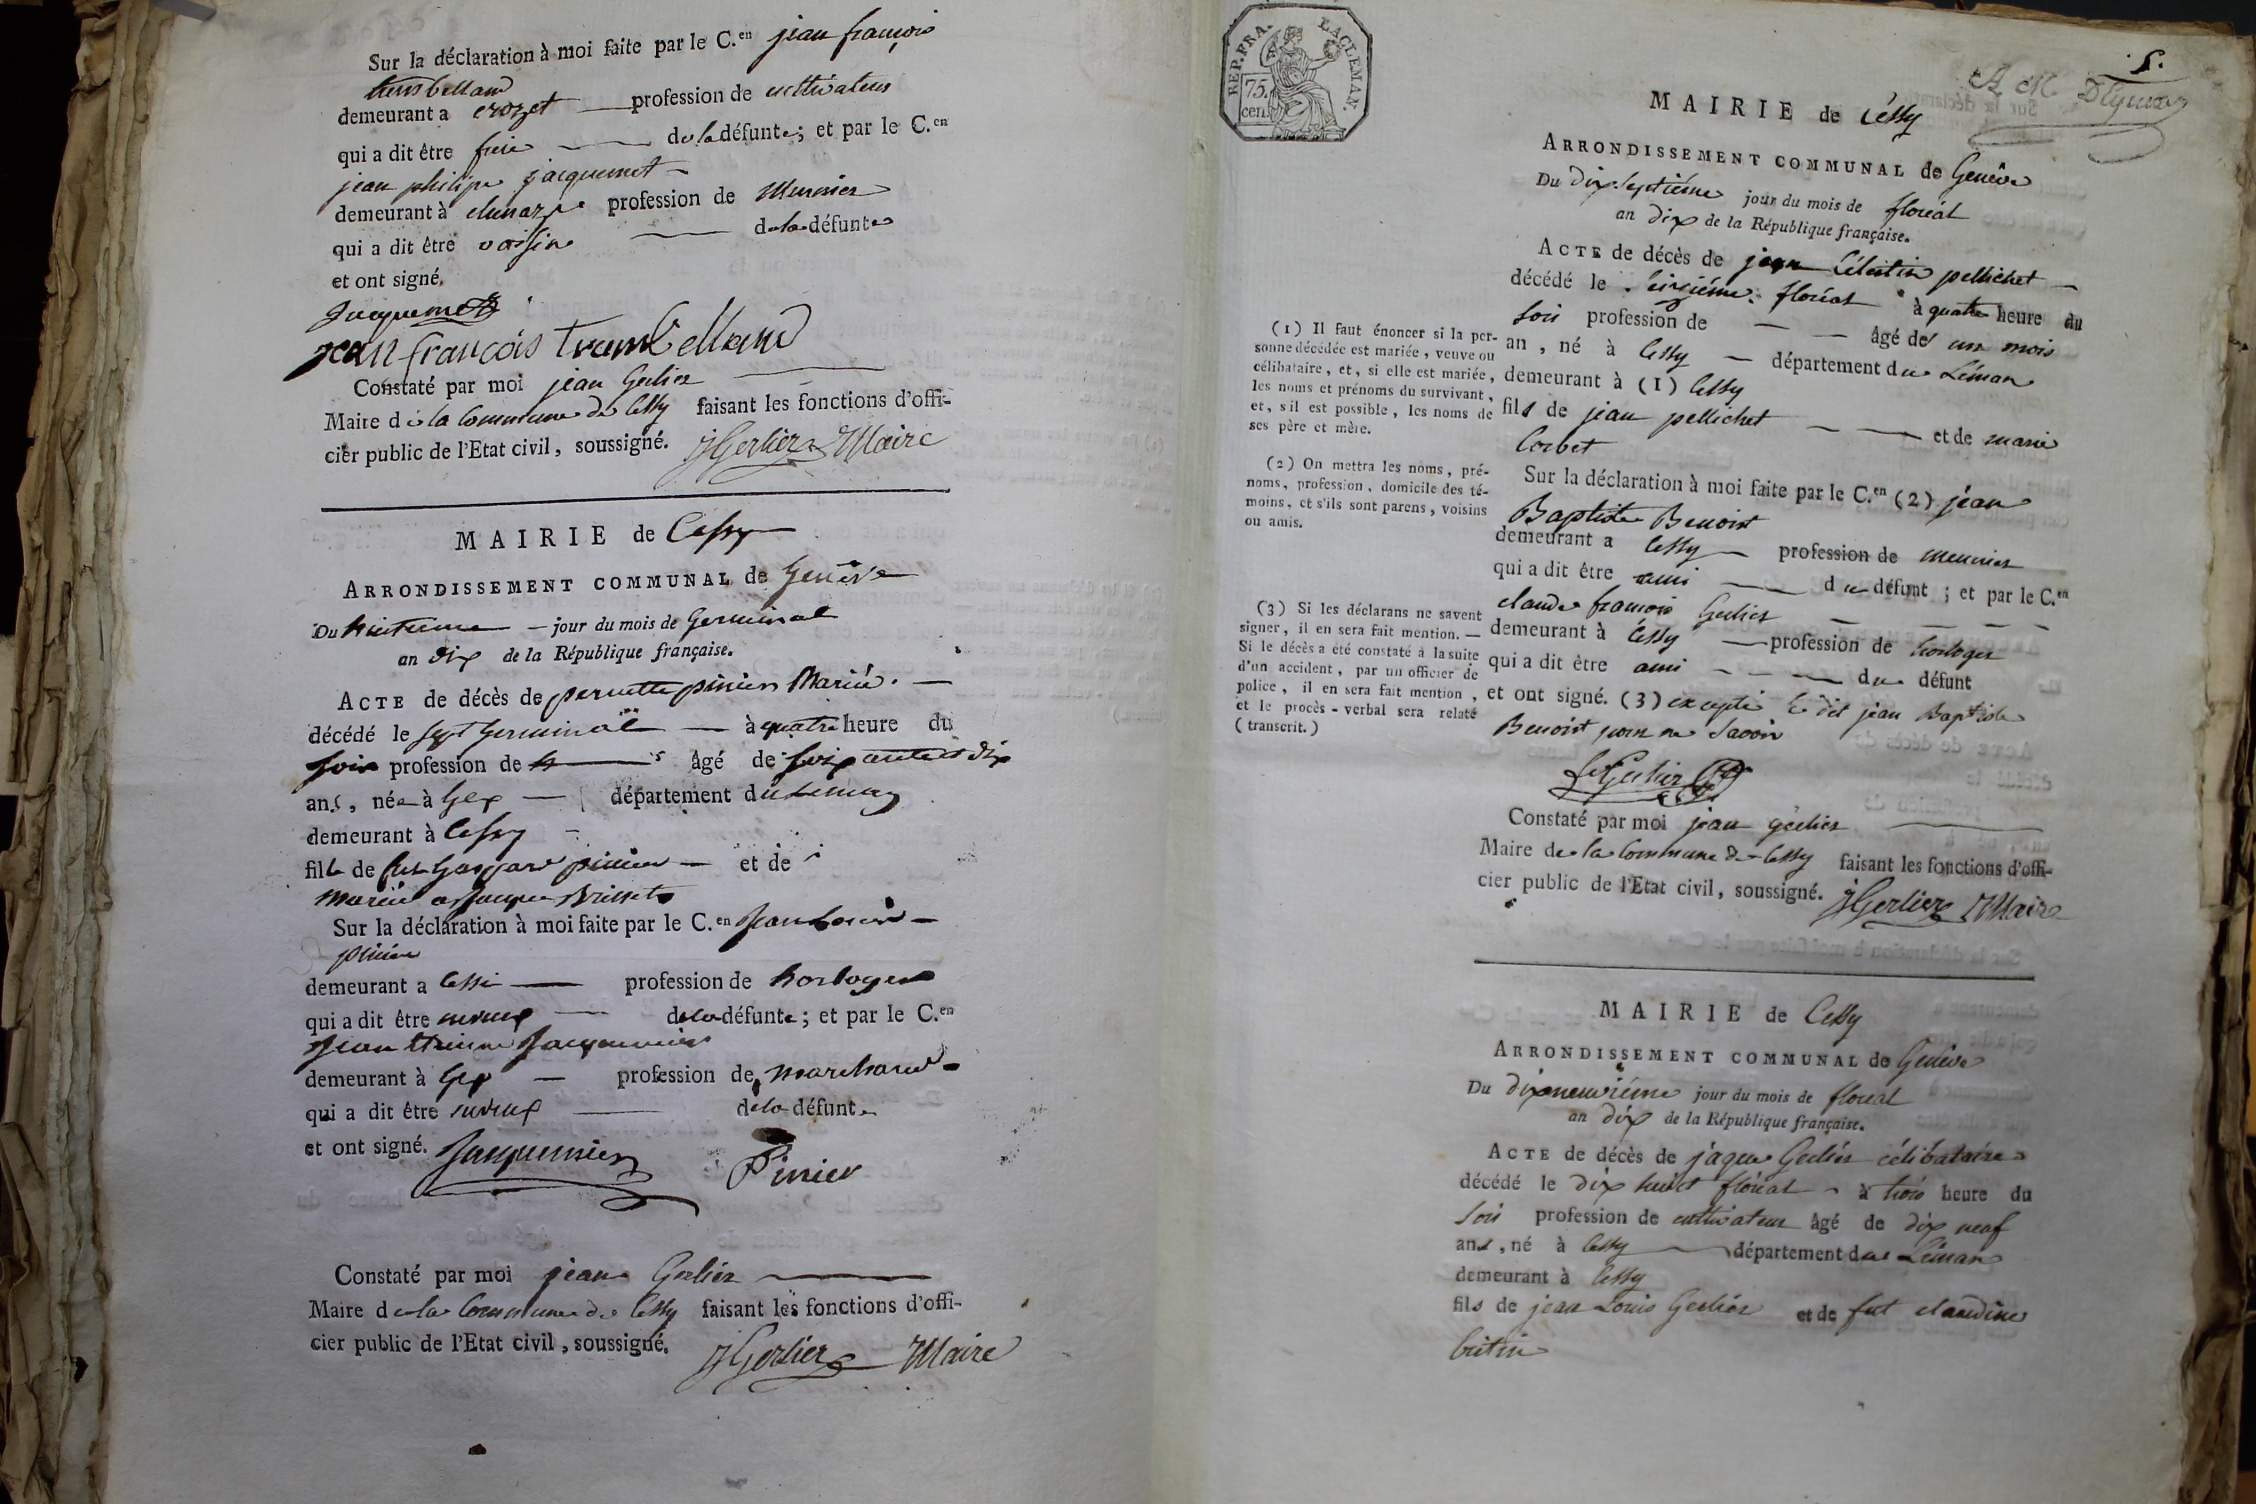 Sur la déclaration à moi faite par le C.en jean françois
trombelland
demeurant a crozet profession de cultivateur
qui a dit être de la défunte; et par le C.en
jean philipe jacquemet
demeurant à profession de Meunier
qui a dit être voisin de la défunte
et ont signé.
Jacquemet
jean françois trombelland
Constaté par moi jean Gerlier
Maire de la Commune de Cessy faisant les fonctions d'offi-
cier public de l'Etat civil, soussigné. JGerlier Maire
MAIRIE de Cessy
ARRONDISSEMENT COMMUNAL de Genève
Du huitieme jour du mois de Germinal
an dix de la République française.
ACTE de décès de pernette pinier Mariée.
décédé le sept Germinal à quatre heure du
soir profession de âgé de soixante et dix
ans, née à Gex département du Leman
demeurant à Cessy
fille de feu Gaspard pinier et de
Mariée a Jacque
Sur la déclaration à moi faite par le C.en Jean Louis
pinier
demeurant a Cessi profession de horloger
qui a dit être neveux de la défunte; et par le C.en
Jean Jacquemier
demeurant à Gex profession de marchand
qui a dit être neveux de la défunte
et ont signé. Jacquemier Pinier
Constaté par moi jean Gerlier
Maire de la Commune de Cessy faisant les fonctions d'offi-
cier public de l'Etat civil, soussigné. JGerlier Maire
REP. FRA. LAC LEMAN.
75. cen.
5.
MAIRIE de Cessy
ARRONDISSEMENT COMMUNAL de Genève
Du dix septiéme jour du mois de floréal
an dix de la République française.
ACTE de décès de jean Célestin pellichet
décédé le floréal à quatre heure du
soir profession de âgé de un mois
an, né à Cessy département du Léman
demeurant à (1) Cessy
fils de jean pellichet et de marie
Corbet
Sur la déclaration à moi faite par le C.en (2) jean
Baptiste Benoist
demeurant a Cessy profession de meunier
qui a dit être ami du défunt; et par le C.en
claude françois Gerlier
demeurant à Cessy profession de horloger
qui a dit être ami du défunt
et ont signé. (3) excepté le dit jean Baptiste
Benoist pour ne Savoir
Gerlier
Constaté par moi jean gerlier
Maire de la Commune de Cessy faisant les fonctions d'offi-
cier public de l'Etat civil, soussigné. JGerlier Maire
(1) Il faut énoncer si la per-
sonne décédée est mariée, veuve ou
célibataire, et, si elle est mariée,
les noms et prénoms du survivant,
et, s'il est possible, les noms de
ses père et mère.
(2) On mettra les noms, pré-
noms, profession, domicile des té-
moins, et s'ils sont parens, voisins
ou amis.
(3) Si les déclarans ne savent
signer, il en sera fait mention. —
Si le décès a été constaté à la suite
d'un accident, par un officier de
police, il en sera fait mention,
et le procès-verbal sera relaté
(transcrit.)
MAIRIE de Cessy
ARRONDISSEMENT COMMUNAL de Genève
Du dixneuviéme jour du mois de floréal
an dix de la République française.
ACTE de décès de jaque Gerlier célibataire
décédé le dix huict floréal à trois heure du
soir profession de cultivateur âgé de dix neuf
ans, né à Cessy département du Léman
demeurant à Cessy
fils de jean Louis Gerlier et de fut claudine